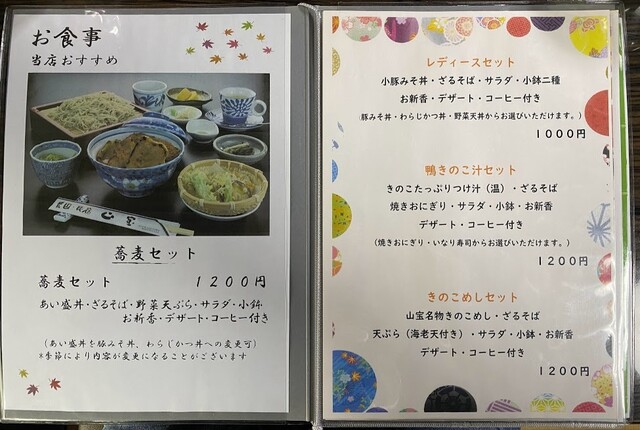 お食事
当店おすすめ
蕎麦セット
蕎麦セット　１２００円
あい盛丼・ざるそば・野菜天ぷら・サラダ・小鉢
お新香・デザート・コーヒー付き
（あい盛丼を豚みそ丼、わらじかつ丼への変更可）
＊季節により内容が変更になることがございます
レディースセット
小豚みそ丼・ざるそば・サラダ・小鉢二種
お新香・デザート・コーヒー付き
（豚みそ丼・わらじかつ丼・野菜天丼からお選びいただけます。）
１０００円
鴨きのこ汁セット
きのこたっぷりつけ汁（温）・ざるそば
焼きおにぎり・サラダ・小鉢・お新香
デザート・コーヒー付き
（焼きおにぎり・いなり寿司からお選びいただけます。）
１２００円
きのこめしセット
山宝名物きのこめし・ざるそば
天ぷら（海老天付き）・サラダ・小鉢・お新香
デザート・コーヒー付き
１２００円